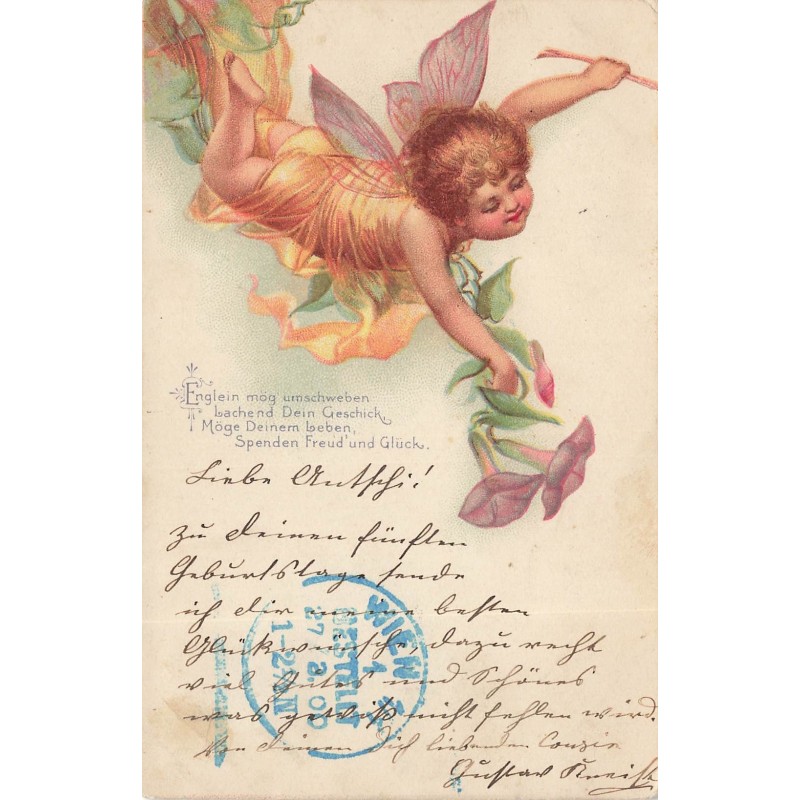 Englein mög umschweben
Lachend Dein Geschick,
Möge Deinem Leben,
Spenden Freud' und Glück.
Liebe Antschi!
Zu deinen fünften
Geburtstage sende
ich dir meine besten
Glückwünsche, dazu recht
viel Gutes und Schönes
was gewiß nicht fehlen wird.
Von deinen dich liebenden Couzin
Gustav
WIEN
1
BESTELLT
27
00
1-2